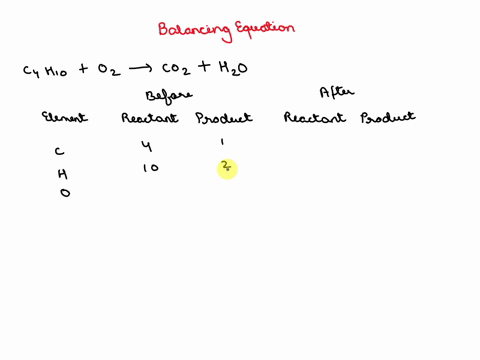 Balancing Equation
C4H10 + O2 → CO2 + H2O
Before After
Element Reactant Product Reactant Product
C 4 1
H 10 2
O